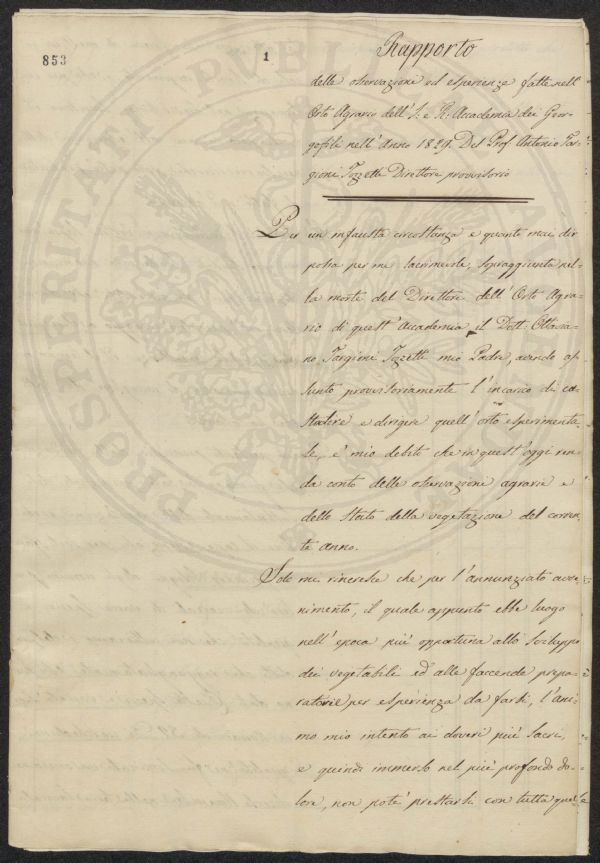 853
1
Rapporto
delle osservazione ed esperienze fatte nell'
Orto Agrario dell'I. e R. Accademia dei Geor-
gofili nell'Anno 1829. Del Prof. Antonio Tar-
gioni Tozzetti Direttore provvisorio
Per un infausta circostanza e quanto mai dir
posso per me lacrimevole, sopraggiunta nel-
la morte del Direttore dell'Orto Agra-
rio di quest'Accademia il Dott. Ottavia-
no Targioni Tozzetti mio Padre, avendo as
sunto provvisoriamente l'incarico di cu-
stodire e dirigere quell'orto esperimenta-
le, e' mio debito che in quest'oggi ren-
da conto delle osservazioni agrarie e
dello stato della vegetazione del corren-
te anno.
Solo mi rincresce che per l'annunziato avve-
nimento, il quale appunto ebbe luogo
nell'epoca più opportuna allo sviluppo
dei vegetabili ed alle faccende prepa-
ratorie per esperienza da farsi, l'ani-
mo mio intento ai doveri più sacri,
e quindi immerso nel più profondo do-
lore, non potè prestarsi con tutta quel
PROSPERITATI PVBLI